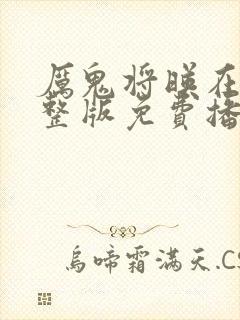 厲鬼将映在
整版免費播
烏啼霜滿天.CS